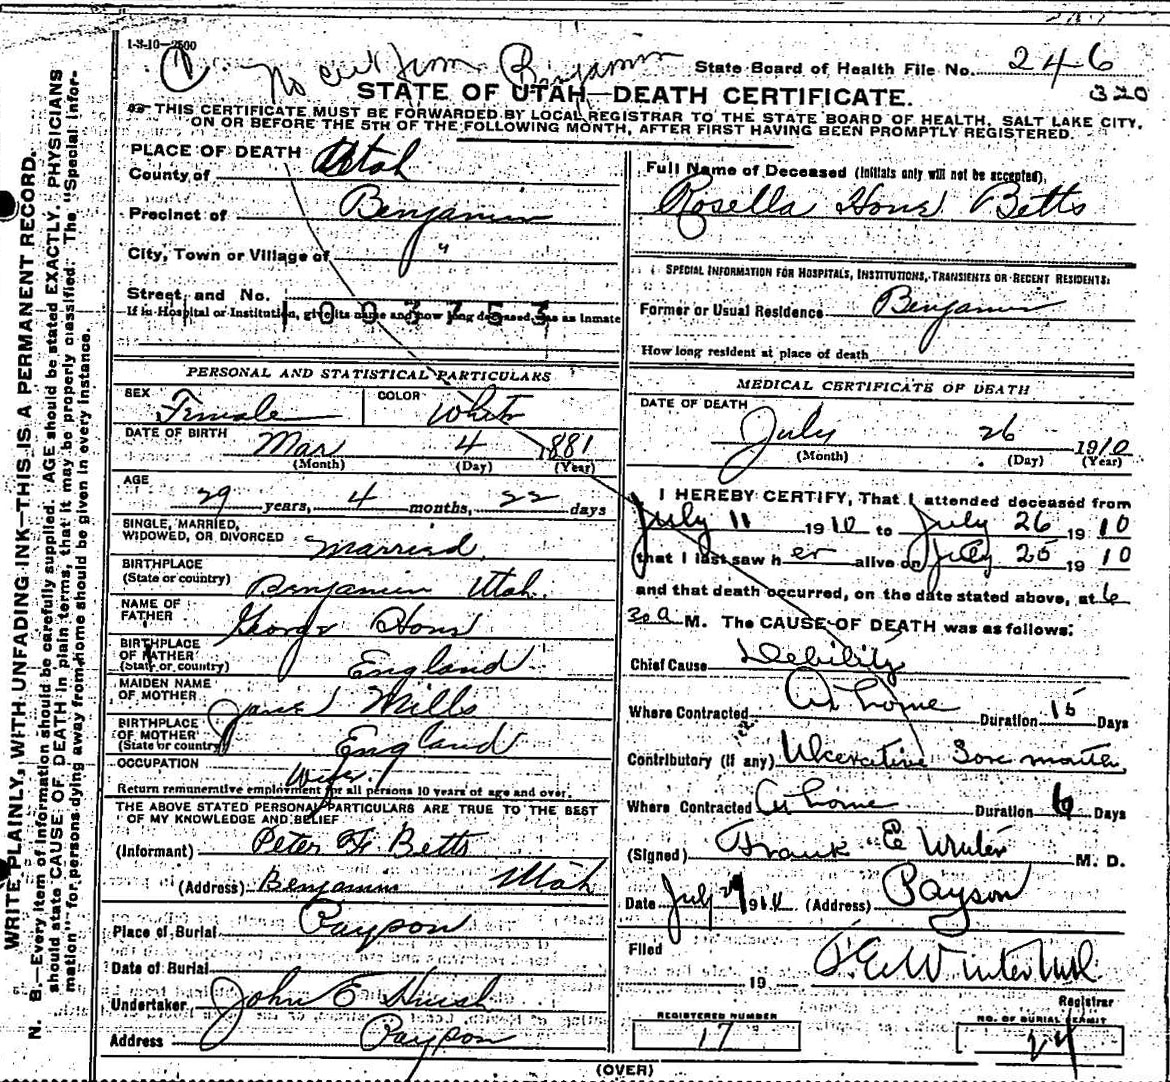 1-3-10—2500
No cert from Benjamin
State Board of Health File No. 246
320
STATE OF UTAH—DEATH CERTIFICATE.
THIS CERTIFICATE MUST BE FORWARDED BY LOCAL REGISTRAR TO THE STATE BOARD OF HEALTH, SALT LAKE CITY,
ON OR BEFORE THE 5TH OF THE FOLLOWING MONTH, AFTER FIRST HAVING BEEN PROMPTLY REGISTERED.
WRITE PLAINLY, WITH UNFADING INK—THIS IS A PERMANENT RECORD.
N. B.—Every item of information should be carefully supplied. AGE should be stated EXACTLY. PHYSICIANS
should state CAUSE OF DEATH in plain terms, that it may be properly classified. The "Special Infor-
mation" for persons dying away from home should be given in every instance.
PLACE OF DEATH
County of Utah
Precinct of Benjamin
City, Town or Village of "
Street, and No.
1003753
If in Hospital or Institution, give its name and how long deceased was as inmate
PERSONAL AND STATISTICAL PARTICULARS
SEX Female COLOR White
DATE OF BIRTH Mar 4 1881
(Month) (Day) (Year)
AGE
29 years, 4 months, 22 days
SINGLE, MARRIED,
WIDOWED, OR DIVORCED Married
BIRTHPLACE
(State or country) Benjamin Utah
NAME OF
FATHER George Hone
BIRTHPLACE
OF FATHER
(State or country) England
MAIDEN NAME
OF MOTHER Jane Mills
BIRTHPLACE
OF MOTHER
(State or country) England
OCCUPATION Wife
Return remunerative employment for all persons 10 years of age and over.
THE ABOVE STATED PERSONAL PARTICULARS ARE TRUE TO THE BEST
OF MY KNOWLEDGE AND BELIEF
(Informant) Peter F. Betts
(Address) Benjamin Utah
Place of Burial Payson
Date of Burial
Undertaker John E Huish
Address Payson
Full Name of Deceased (Initials only will not be accepted),
Rosella Hone Betts
SPECIAL INFORMATION FOR HOSPITALS, INSTITUTIONS, TRANSIENTS OR RECENT RESIDENTS:
Former or Usual Residence Benjamin
How long resident at place of death
MEDICAL CERTIFICATE OF DEATH
DATE OF DEATH
July 26 1910
(Month) (Day) (Year)
I HEREBY CERTIFY, That I attended deceased from
July 11 1910 to July 26 1910
that I last saw her alive on July 25 1910
and that death occurred, on the date stated above, at 6
30 a M. The CAUSE OF DEATH was as follows:
Chief Cause Debility
Where Contracted At home Duration 15 Days
Contributory (if any) Ulcerative Sore mouth
Where Contracted At home Duration 6 Days
(Signed) Frank E Winter M. D.
Date July 29 1910 (Address) Payson
Filed
19 F.E. Winter M.D.
Registrar
REGISTERED NUMBER
17
NO. OF BURIAL PERMIT
24
(OVER)